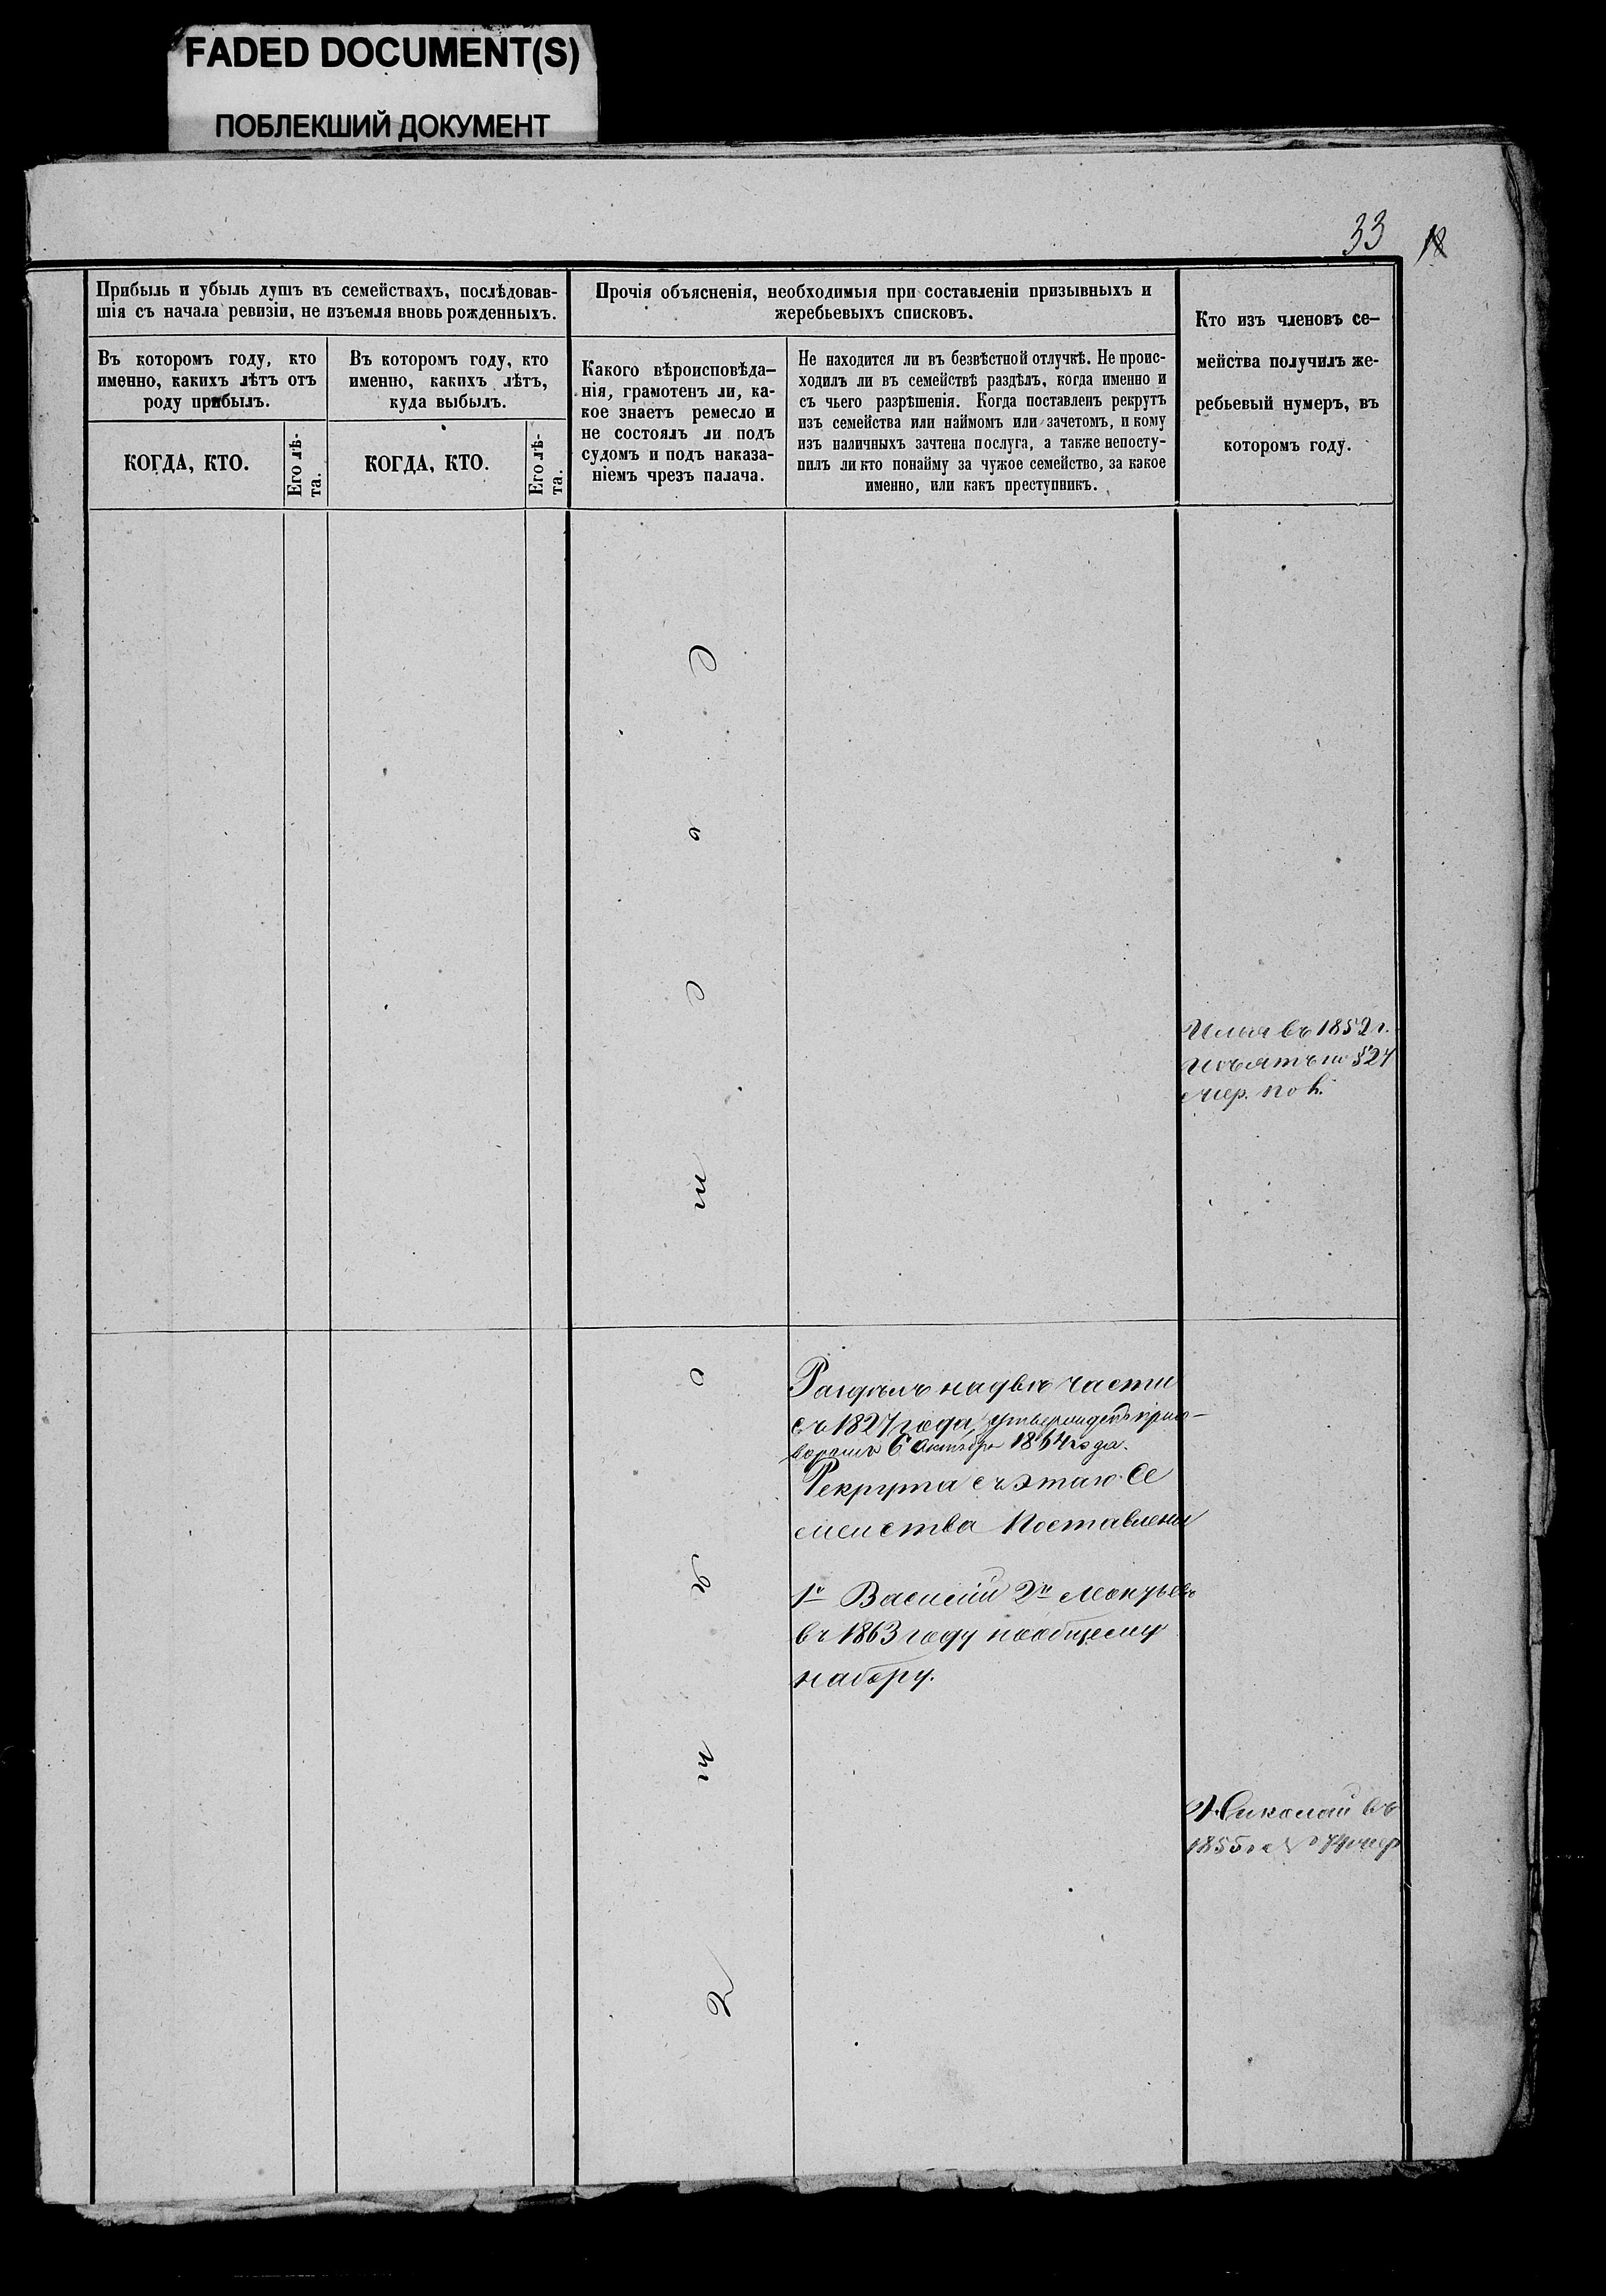 FADED DOCUMENT(S)
ПОБЛЕКШИЙ ДОКУМЕНТ
33
Прибыль и убыль душъ въ семействахъ, послѣдовав-
шія съ начала ревизіи, не изъемля вновь рожденныхъ.
Въ которомъ году, кто
именно, какихъ лѣтъ отъ
роду прибылъ.
КОГДА, КТО.
Его лѣ-
та.
Въ которомъ году, кто
именно, какихъ лѣтъ,
куда выбылъ.
КОГДА, КТО.
Его лѣ-
та.
Прочія объясненія, необходимыя при составленіи призывныхъ и
жеребьевыхъ списковъ.
Какого вѣроисповѣда-
нія, грамотенъ ли, ка-
кое знаетъ ремесло и
не состоялъ ли подъ
судомъ и подъ наказа-
ніемъ чрезъ палача.
Не находится ли въ безвѣстной отлучкѣ. Не проис-
ходилъ ли въ семействѣ раздѣлъ, когда именно и
съ чьего разрѣшенія. Когда поставленъ рекрутъ
изъ семейства или наймомъ или зачетомъ, и кому
изъ наличныхъ зачтена послуга, а также непосту-
пилъ ли кто понайму за чужое семейство, за какое
именно, или какъ преступникъ.
Кто изъ членовъ се-
мейства получилъ же-
ребьевый нумеръ, въ
которомъ году.
Илья въ 1852 г.
Изъятъ по §24
Раздѣлъ на двѣ части
съ 1827 года, утвержденъ приго-
воромъ 6 Октября 1864 года.
Рекрута съ этаго Се
мейства Поставлены
1й Василій 2й
въ 1863 году по общему
набору.
Николай въ
1855